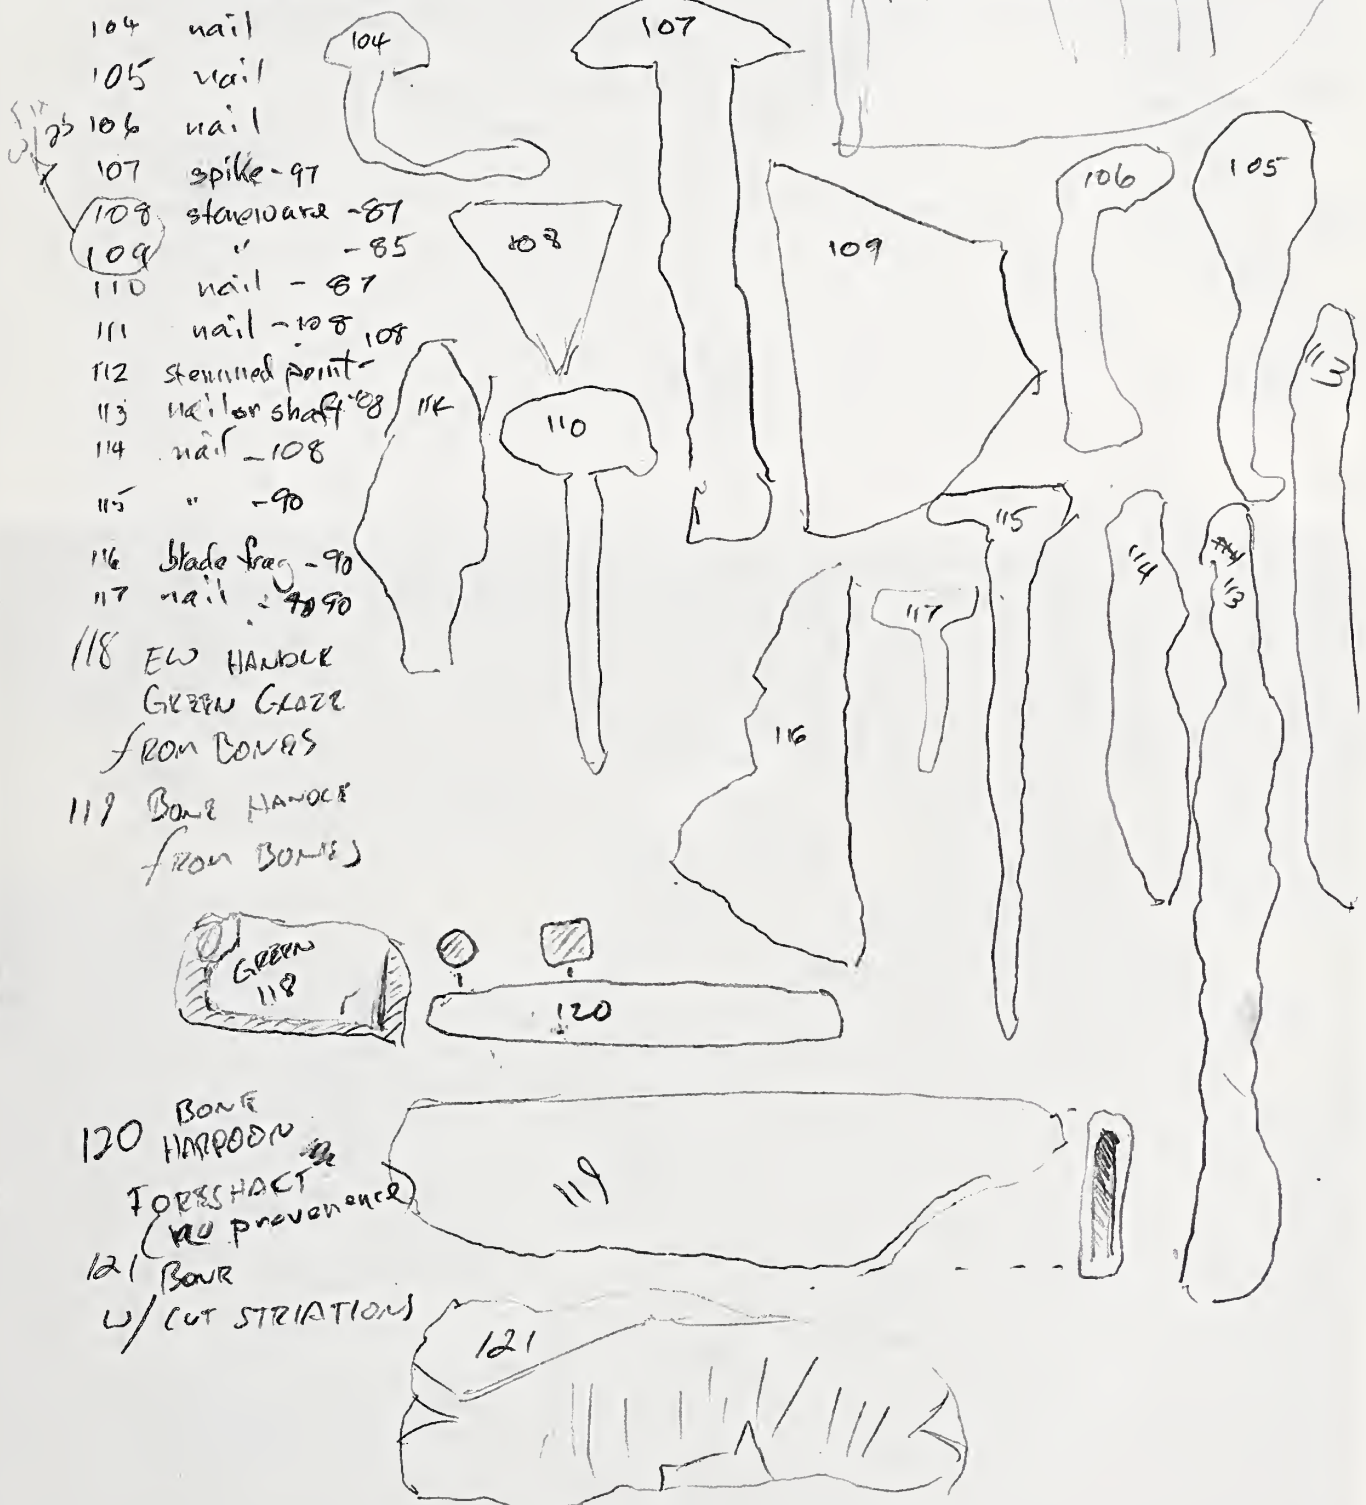 104 nail
105 nail
106 nail
107 spike - 97
108 stoneware - 87
109 " - 85
110 nail - 87
111 nail - 108
112 stemmed point - 108
113 nail or shaft - 108
114 nail - 108
115 " - 90
116 blade frag - 90
117 nail - 90
118 EW HANDLE
GREEN GLAZE
FROM BONES
119 BONE HANDLE
FROM BONES
120 BONE
HARPOON
FORESHAFT
(no provenence)
121 BONE
W/ CUT STRIATIONS
104
107
106
105
108
109
113
112
110
115
114
113
117
116
GREEN
118
120
119
121